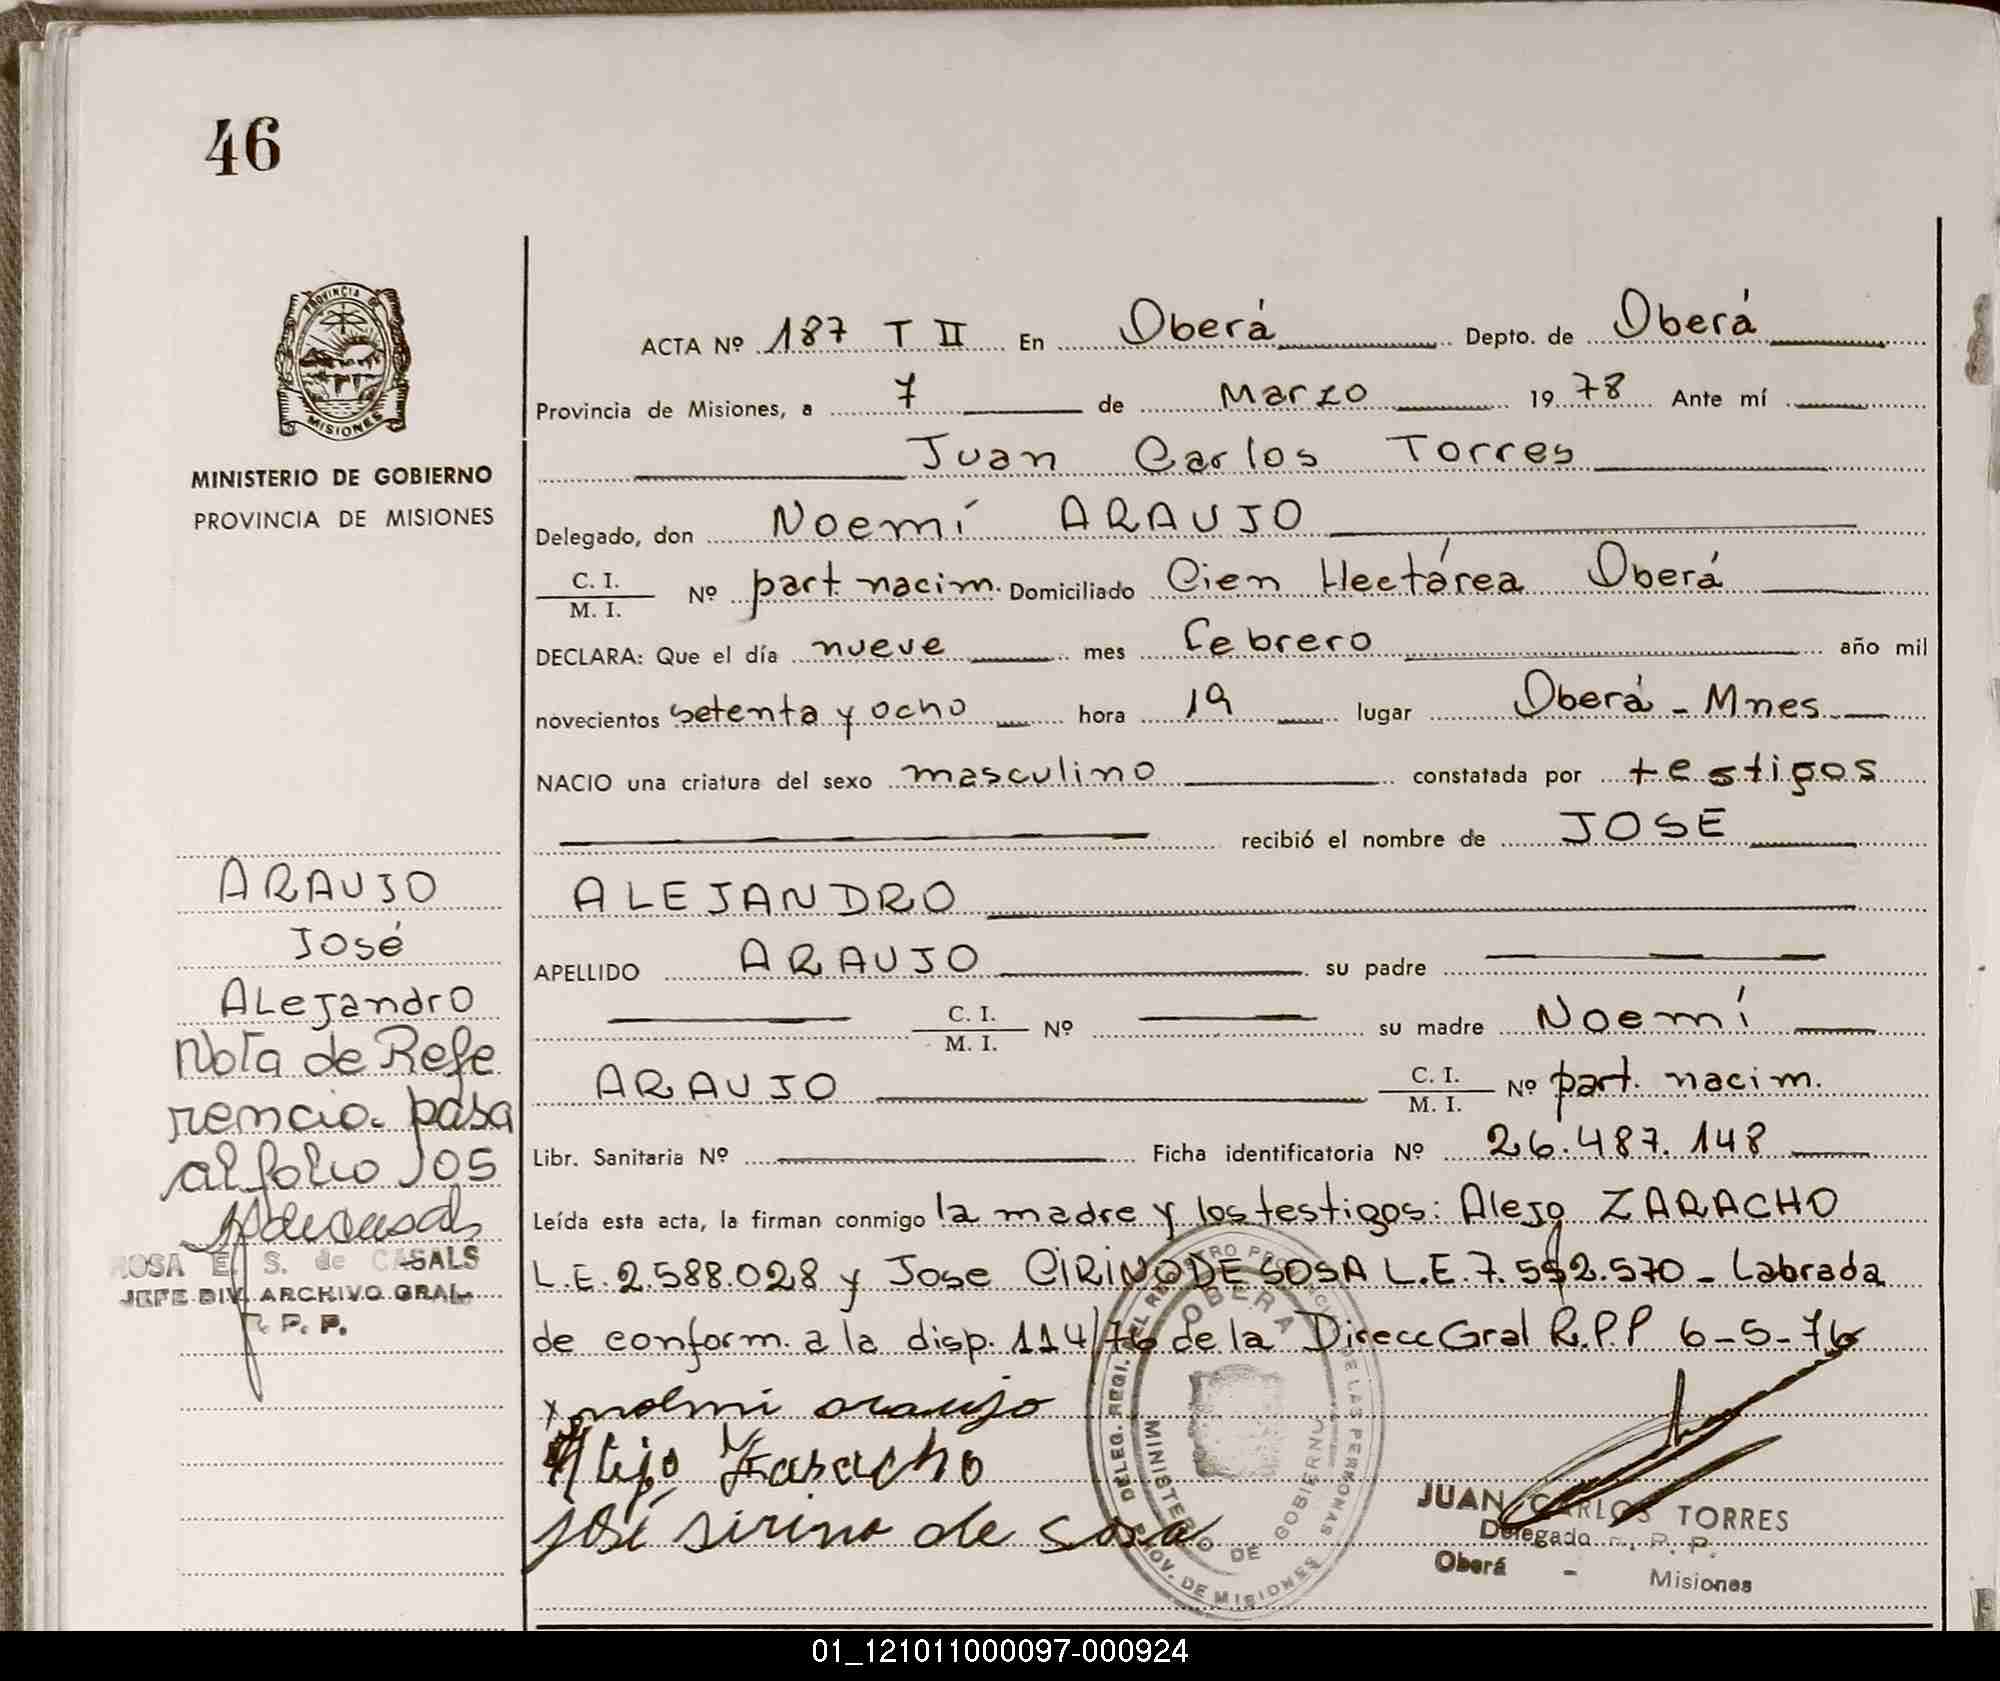 46
PROVINCIA DE
MISIONES
MINISTERIO DE GOBIERNO
PROVINCIA DE MISIONES
ACTA Nº 187 T II En Oberá Depto. de Oberá
Provincia de Misiones, a 7 de Marzo 1978 Ante mí
Juan Carlos Torres
Delegado, don Noemí ARAUJO
C. I. / M. I. Nº part. nacim. Domiciliado Cien Hectárea Oberá
DECLARA: Que el día nueve mes febrero año mil
novecientos setenta y ocho hora 19 lugar Oberá - Mnes
NACIO una criatura del sexo masculino constatada por testigos
recibió el nombre de JOSE
ALEJANDRO
APELLIDO ARAUJO su padre
C. I. / M. I. Nº su madre Noemí
ARAUJO C. I. / M. I. Nº part. nacim.
Libr. Sanitaria Nº Ficha identificatoria Nº 26.487.148
Leída esta acta, la firman conmigo la madre y los testigos: Alejo ZARACHO
L.E. 2.588.028 y Jose CIRINO DE SOSA L.E. 7.592.570 - Labrada
de conform. a la disp. 114/76 de la Direcc Gral R.P.P 6-5-76
x noemi araujo
Alejo Zaracho
josé sirino de sosa
ARAUJO
José
ALejandro
Nota de Refe
rencia. pasa
al folio 105
ROSA E. S. de CASALS
JEFE DIV. ARCHIVO GRAL.
R. P. P.
DELEG. REGI. DEL REGISTRO PROVINCIAL DE LAS PERSONAS
OBERA
MINISTERIO DE GOBIERNO
PROV. DE MISIONES
JUAN CARLOS TORRES
Delegado R. P. P.
Oberá - Misiones
01_121011000097-000924